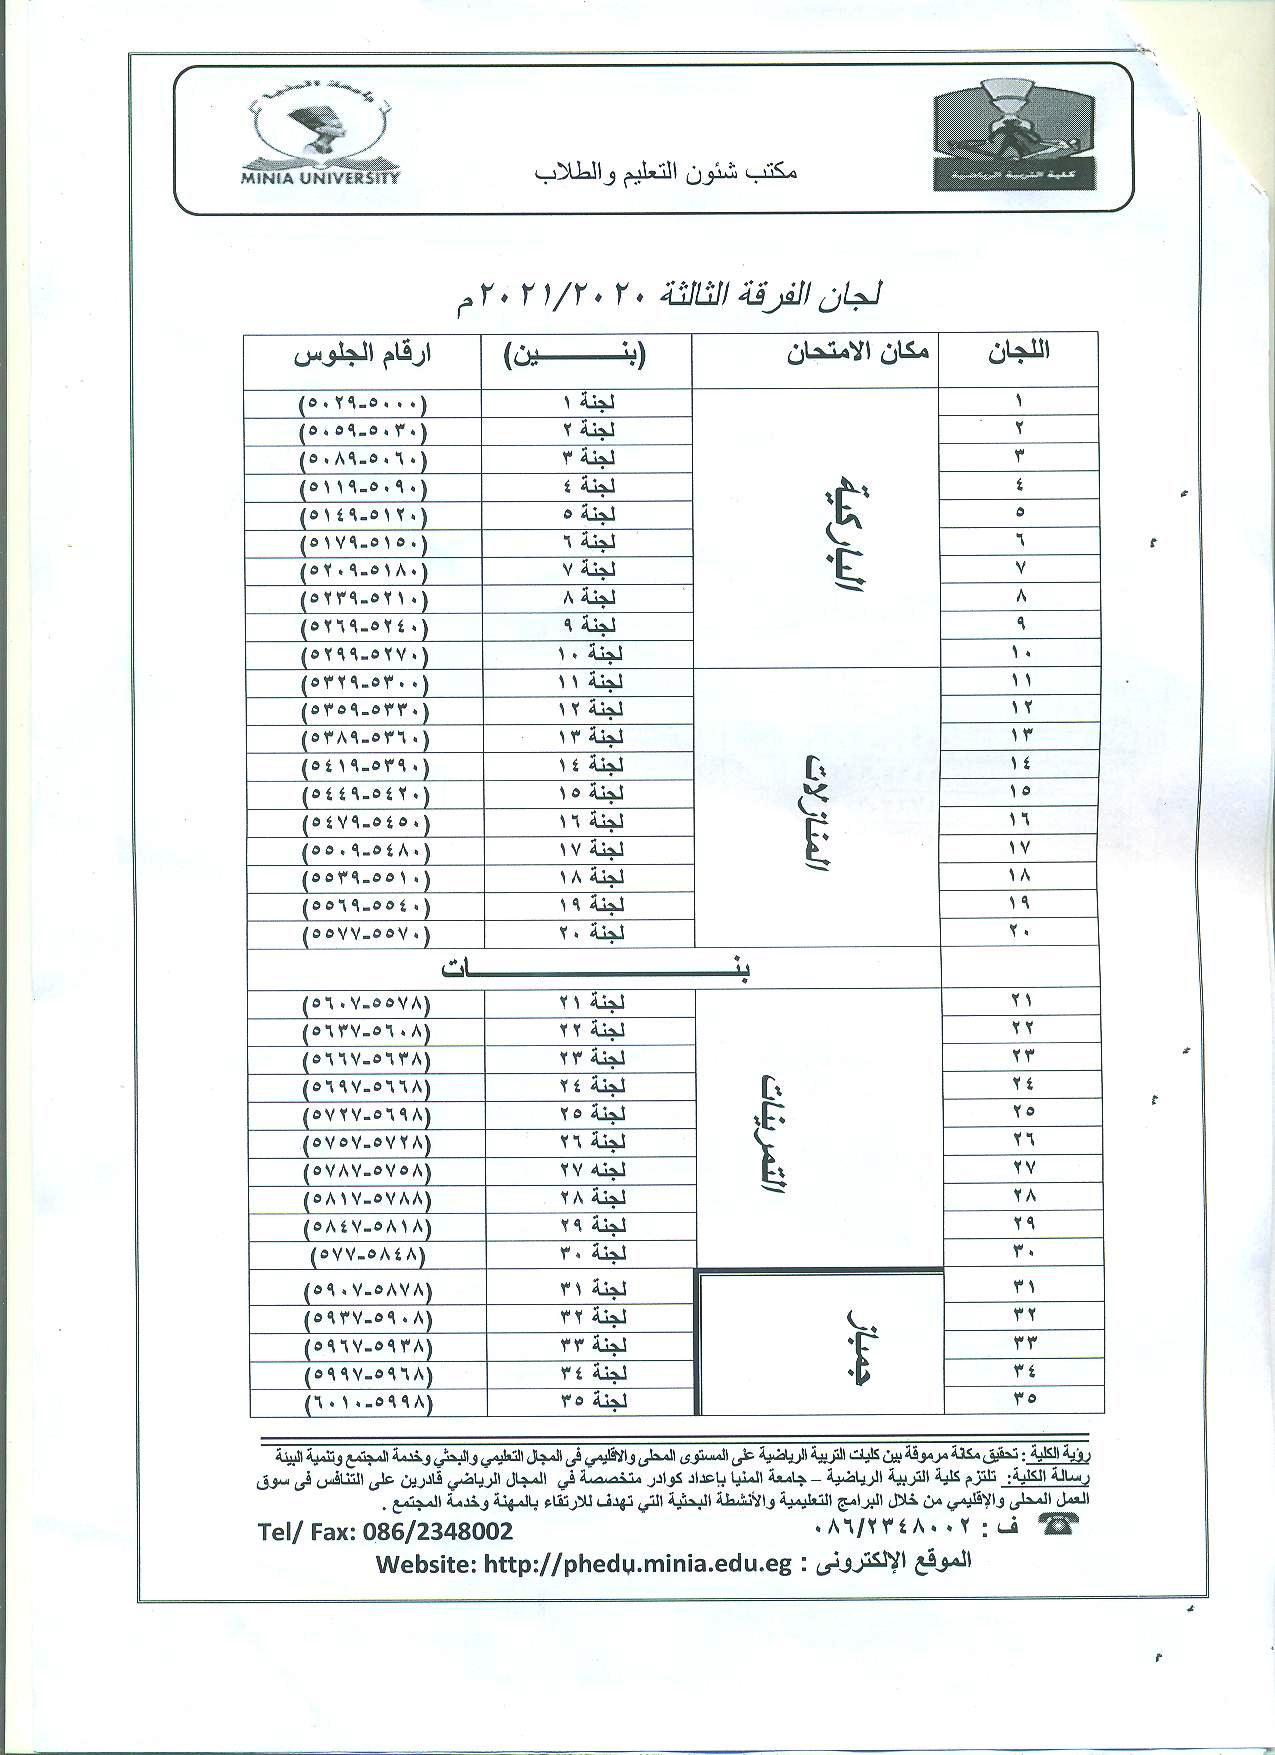 جامعة المنيا
MINIA UNIVERSITY
كلية التربية الرياضية
مكتب شئون التعليم والطلاب
لجان الفرقة الثالثة ٢٠٢١/٢٠٢٠م
اللجان مكان الامتحان (بنــــــين) ارقام الجلوس
١ لجنة ١ (٥٠٠٠-٥٠٢٩)
٢ لجنة ٢ (٥٠٣٠-٥٠٥٩)
٣ لجنة ٣ (٥٠٦٠-٥٠٨٩)
٤ لجنة ٤ (٥٠٩٠-٥١١٩)
٥ لجنة ٥ (٥١٢٠-٥١٤٩)
الباركية
٦ لجنة ٦ (٥١٥٠-٥١٧٩)
٧ لجنة ٧ (٥١٨٠-٥٢٠٩)
٨ لجنة ٨ (٥٢١٠-٥٢٣٩)
٩ لجنة ٩ (٥٢٤٠-٥٢٦٩)
١٠ لجنة ١٠ (٥٢٧٠-٥٢٩٩)
١١ لجنة ١١ (٥٣٠٠-٥٣٢٩)
١٢ لجنة ١٢ (٥٣٣٠-٥٣٥٩)
١٣ لجنة ١٣ (٥٣٦٠-٥٣٨٩)
١٤ لجنة ١٤ (٥٣٩٠-٥٤١٩)
١٥ لجنة ١٥ (٥٤٢٠-٥٤٤٩)
المنازلات
١٦ لجنة ١٦ (٥٤٥٠-٥٤٧٩)
١٧ لجنة ١٧ (٥٤٨٠-٥٥٠٩)
١٨ لجنة ١٨ (٥٥١٠-٥٥٣٩)
١٩ لجنة ١٩ (٥٥٤٠-٥٥٦٩)
٢٠ لجنة ٢٠ (٥٥٧٠-٥٥٧٧)
بنــــــــــــات
٢١ لجنة ٢١ (٥٥٧٨-٥٦٠٧)
٢٢ لجنة ٢٢ (٥٦٠٨-٥٦٣٧)
٢٣ لجنة ٢٣ (٥٦٣٨-٥٦٦٧)
٢٤ لجنة ٢٤ (٥٦٦٨-٥٦٩٧)
٢٥ لجنة ٢٥ (٥٦٩٨-٥٧٢٧)
التمرينات
٢٦ لجنة ٢٦ (٥٧٢٨-٥٧٥٧)
٢٧ لجنه ٢٧ (٥٧٥٨-٥٧٨٧)
٢٨ لجنة ٢٨ (٥٧٨٨-٥٨١٧)
٢٩ لجنة ٢٩ (٥٨١٨-٥٨٤٧)
٣٠ لجنة ٣٠ (٥٨٤٨-٥٧٧)
٣١ لجنة ٣١ (٥٨٧٨-٥٩٠٧)
٣٢ لجنة ٣٢ (٥٩٠٨-٥٩٣٧)
جمباز
٣٣ لجنة ٣٣ (٥٩٣٨-٥٩٦٧)
٣٤ لجنة ٣٤ (٥٩٦٨-٥٩٩٧)
٣٥ لجنة ٣٥ (٥٩٩٨-٦٠١٠)
رؤية الكلية : تحقيق مكانة مرموقة بين كليات التربية الرياضية على المستوى المحلى والاقليمي فى المجال التعليمي والبحثي وخدمة المجتمع وتنمية البيئة
رسالة الكلية: تلتزم كلية التربية الرياضية – جامعة المنيا بإعداد كوادر متخصصة في المجال الرياضي قادرين على التنافس فى سوق
العمل المحلى والإقليمي من خلال البرامج التعليمية والأنشطة البحثية التي تهدف للارتقاء بالمهنة وخدمة المجتمع .
ف : ٠٨٦/٢٣٤٨٠٠٢ Tel/ Fax: 086/2348002
الموقع الإلكترونى : Website: http://phedu.minia.edu.eg